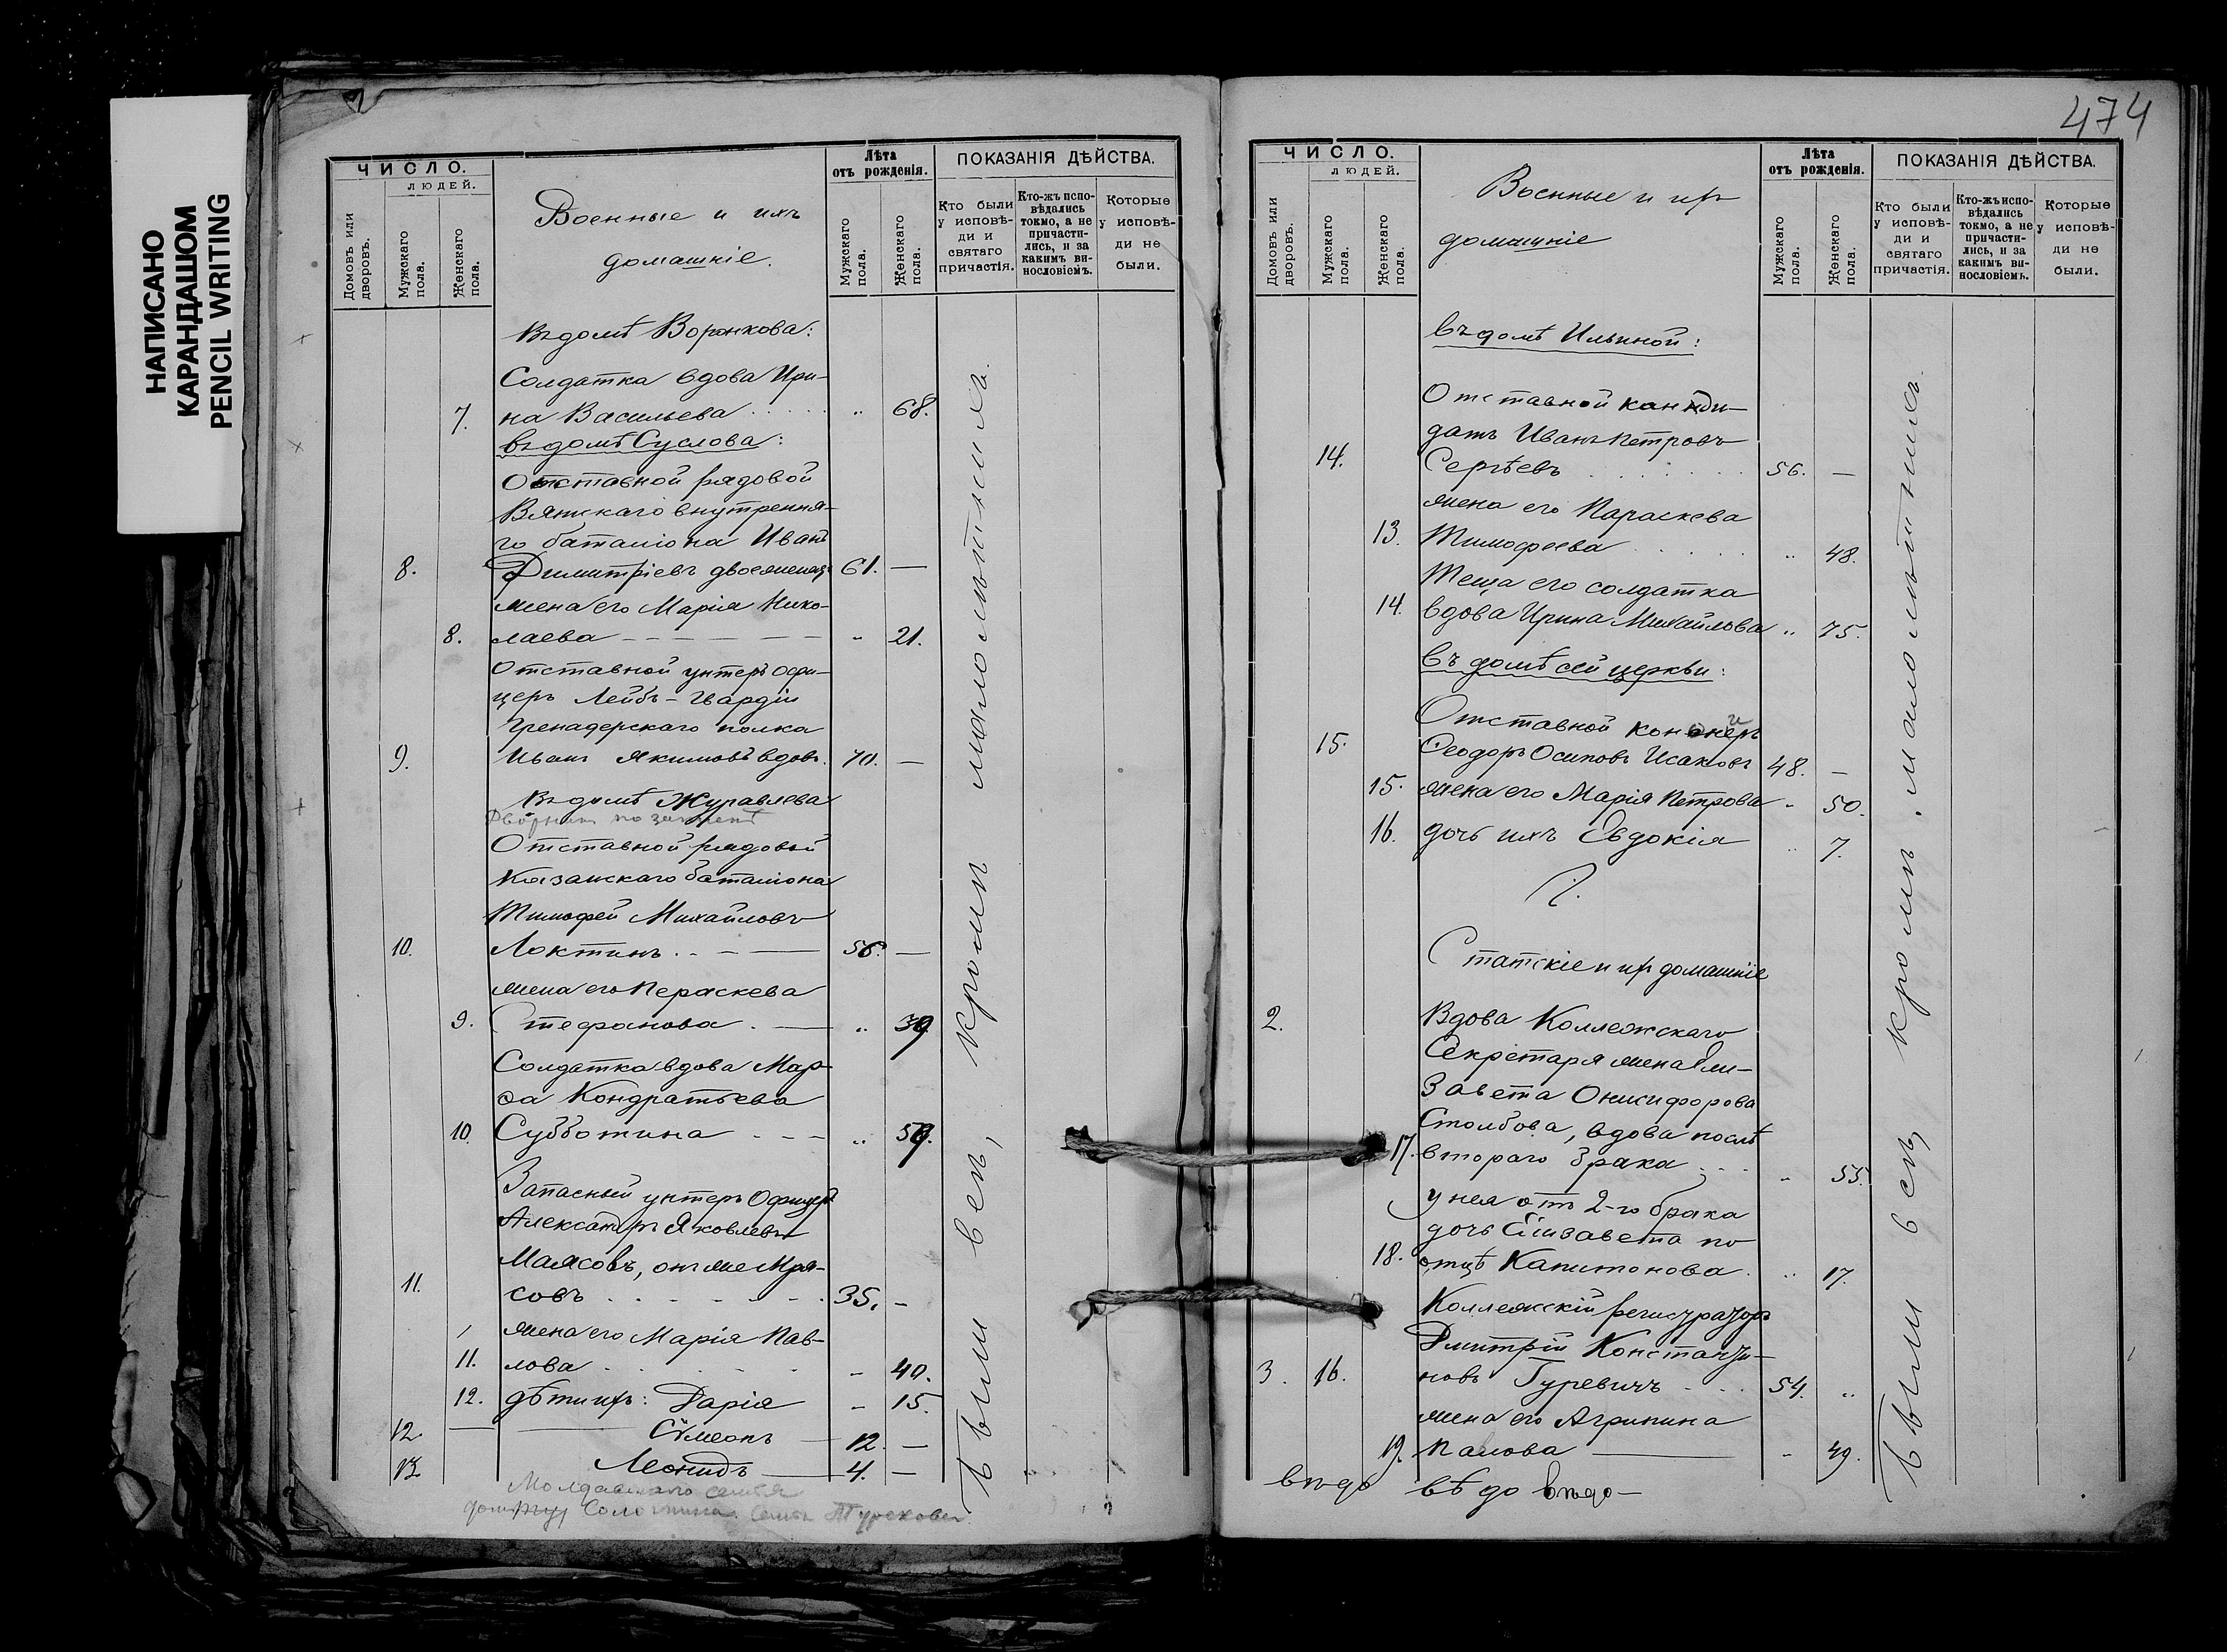 НАПИСАНО
КАРАНДАШОМ
PENCIL WRITING
ЧИСЛО.
ЛЮДЕЙ.
Домовъ или дворовъ.
Мужскаго пола.
Женскаго пола.
Военные и ихъ
домашніе.
Лѣта
отъ рожденія.
Мужскаго пола.
Женскаго пола.
ПОКАЗАНІЯ ДѢЙСТВА.
Кто были у исповѣди и святаго причастія.
Кто-жъ исповѣдались токмо, а не причастились, и за какимъ винословіемъ.
Которые у исповѣди не были.
Въ домѣ Воронкова:
Солдатка вдова Ири-
7. на Васильева .. 68.
въ домѣ Суслова:
Отставной рядовой
Вятскаго внутрення-
го баталіона Иванъ
8. Димитріевъ двоеженецъ 61. —
жена его Марія Нико-
8. лаева .. 21.
Отставной унтеръ офи-
церъ Лейбъ-Гвардіи
Гренадерскаго полка
9. Иванъ Якимовъ вдовъ. 70. —
Въ домѣ Журавлева
Отставной рядовой
Казанскаго баталіона
Тимофей Михайловъ
10. Локтинъ 56. —
жена его Пераскева
9. Стефанова .. 39
Солдатка вдова Мар-
ѳа Кондратьева
10. Субботина .. 59.
Запасный унтеръ Офицеръ
Александръ Яковлевъ
Маясовъ, онъ же Мря-
11. совъ 35. -
жена его Марія Пав-
11. лова - 40.
12. дѣти ихъ: Дарія - 15.
12. Сѷмеонъ 12. —
13. Леонидъ 4. —
Были всѣ, кромѣ малолѣтнихъ.
474
ЧИСЛО.
ЛЮДЕЙ.
Домовъ или дворовъ.
Мужскаго пола.
Женскаго пола.
Военные и их
домашніе
Лѣта
отъ рожденія.
Мужскаго пола.
Женскаго пола.
ПОКАЗАНІЯ ДѢЙСТВА.
Кто были у исповѣди и святаго причастія.
Кто-жъ исповѣдались токмо, а не причастились, и за какимъ винословіемъ.
Которые у исповѣди не были.
Въ домѣ Ильиной:
Отставной канди-
датъ Иванъ Петровъ
14. Сергѣевъ 56. —
жена его Параскева
13. Тимофеева .. 48.
Теща его солдатка
14. вдова Ирина Михайлова .. 75.
Въ домѣ сей церкви:
Отставной
15. Ѳеодоръ Осиповъ Исаковъ 48. —
15. жена его Марія Петрова - 50.
16. дочь ихъ Евдокія .. 7.
Статскіе и их домашніе
2. Вдова Коллежскаго
Секретаря жена Ели-
завета Онисифорова
Столбова, вдова послѣ
17. втораго брака - 55.
у нея отъ 2-го брака
дочь Елизавета по
18. отцѣ Капитонова. .. 17.
Коллежскій регистраторъ
Дмитрій Константи-
3. 16. новъ Гуревичъ 54. ..
жена его Агрипина
19. Павлова - 49.
Были всѣ, кромѣ малолѣтнихъ.